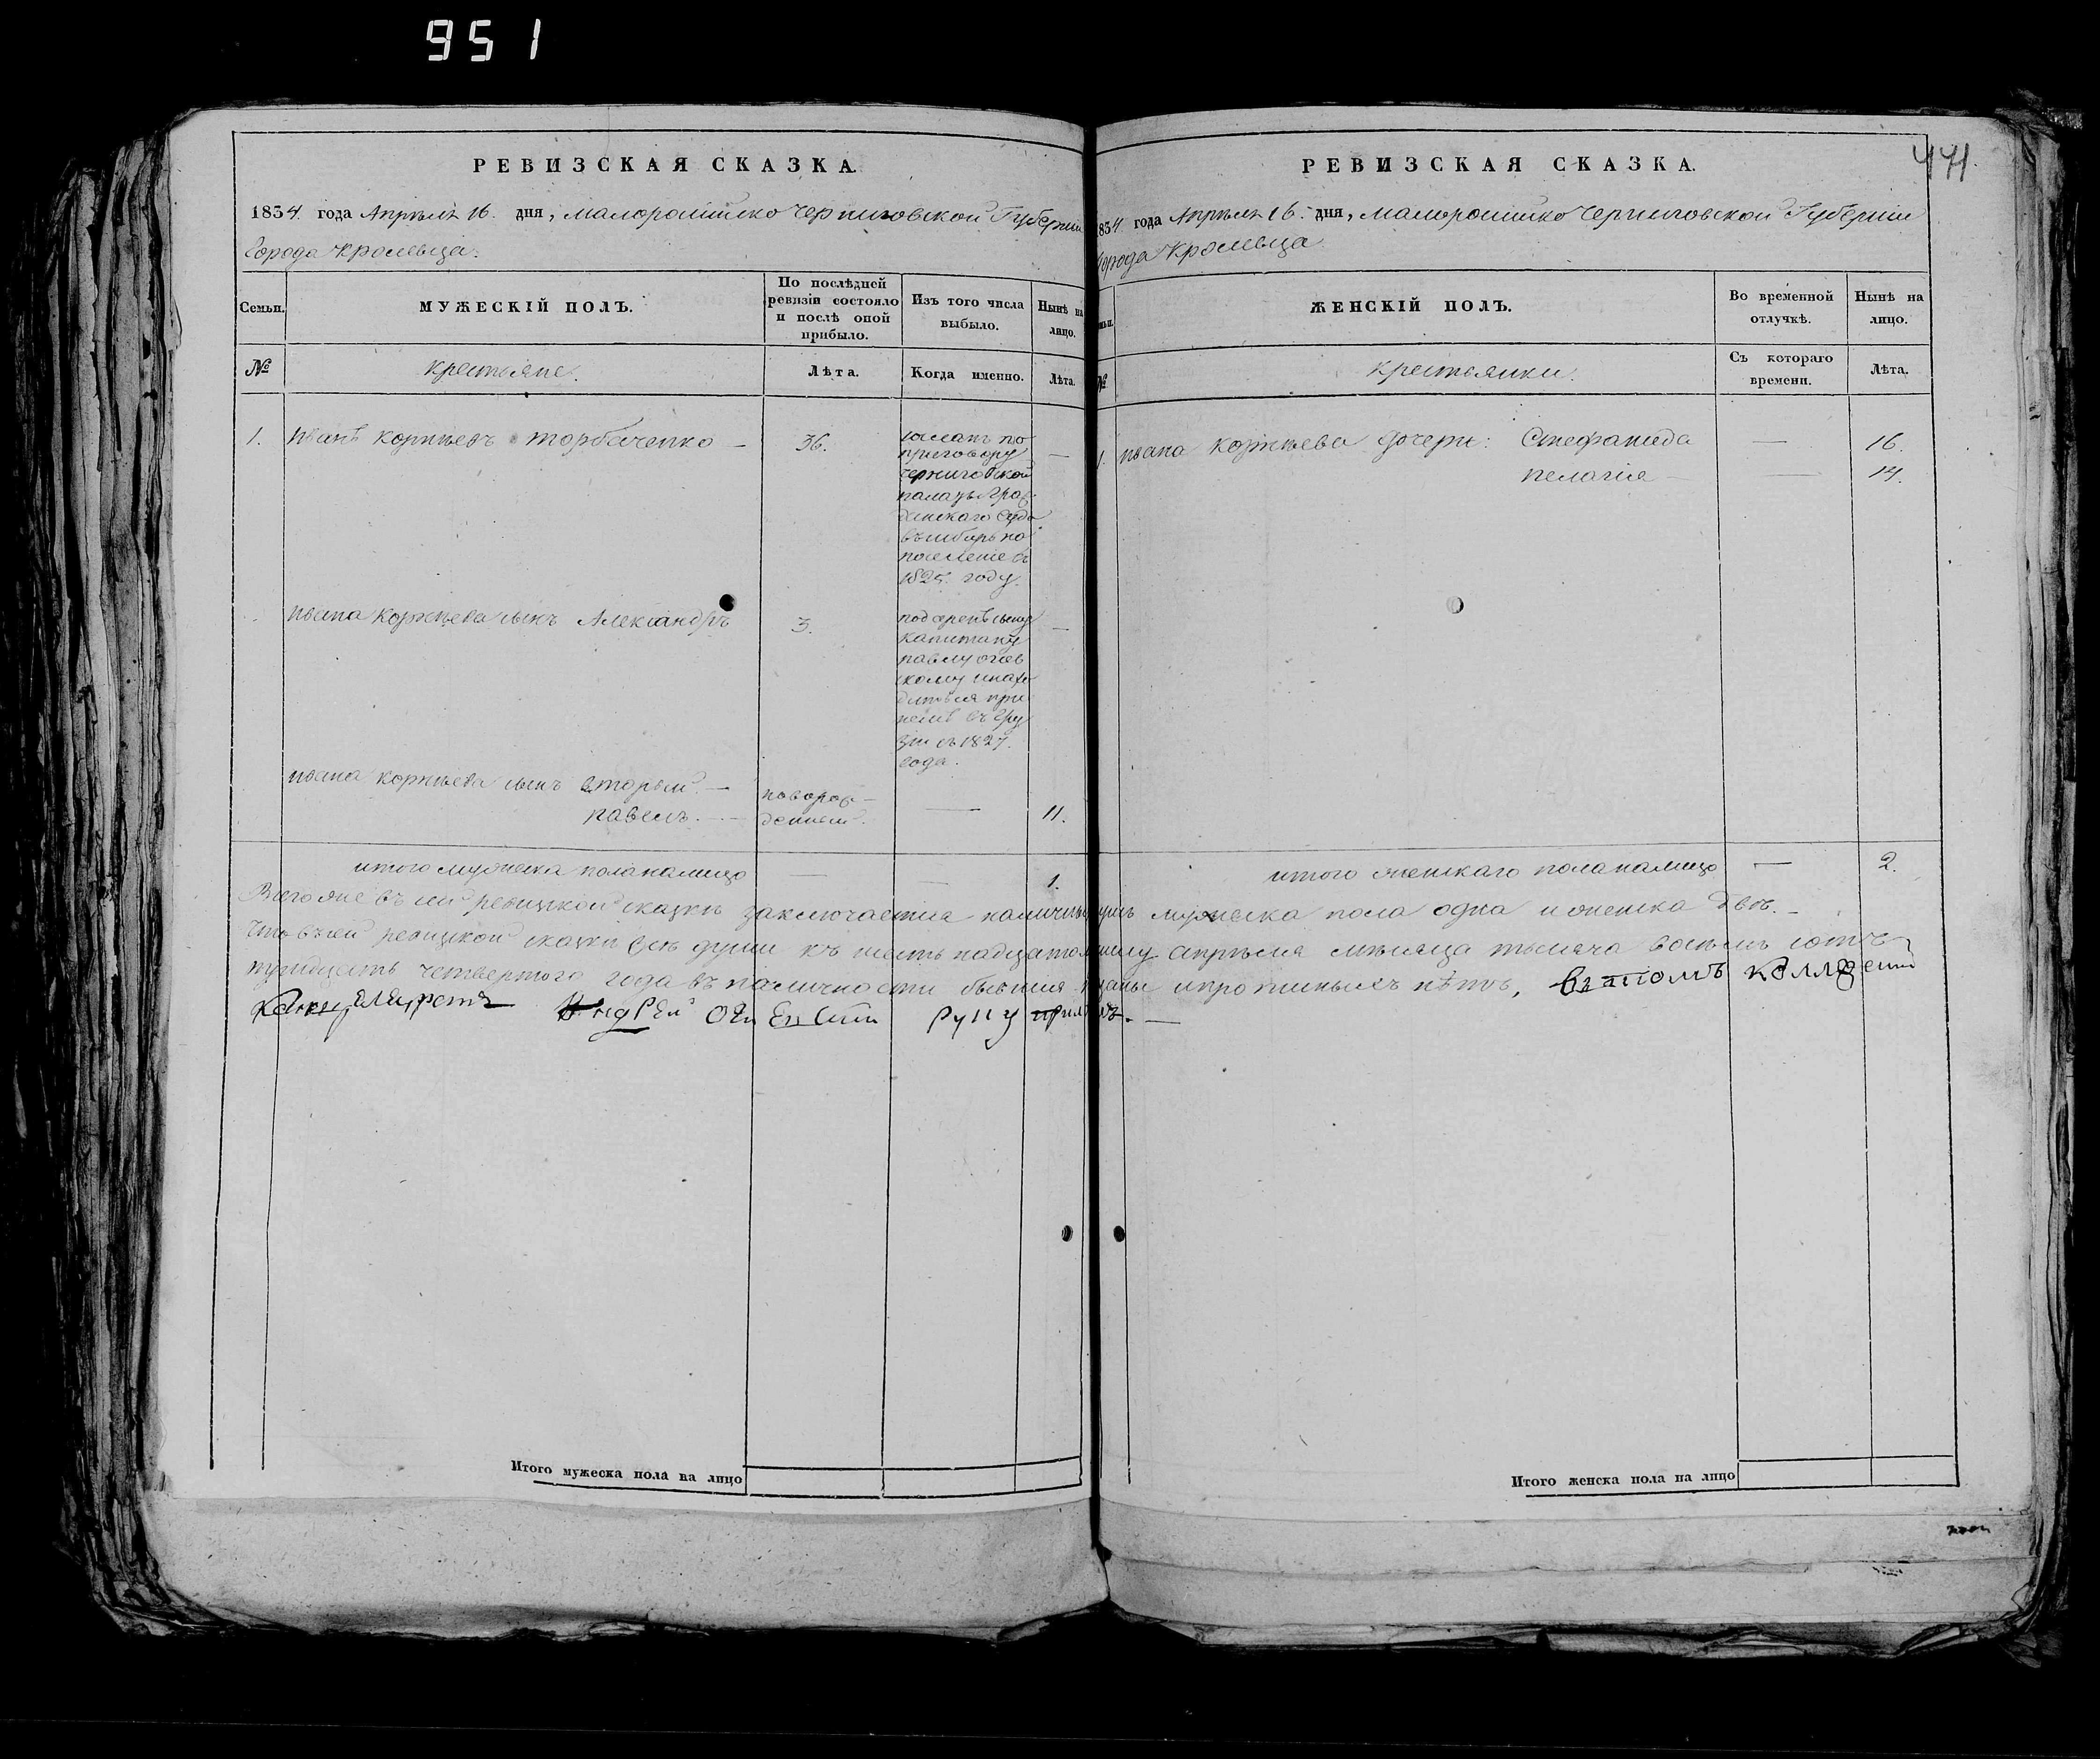 951
РЕВИЗСКАЯ СКАЗКА.
1834 года Апрѣля 16. дня, малороссійско Черниговской Губерніи
Города Кролевца.
Семьи.
МУЖЕСКІЙ ПОЛЪ.
По послѣдней
ревизіи состояло
и послѣ оной
прибыло.
Изъ того числа
выбыло.
Нынѣ на
лицо.
№
крестьяне.
Лѣта.
Когда именно.
Лѣта.
1. иванъ корнѣевъ горбаченко — 36.
сосланъ по
приговору
черниговской
палаты Граж
данскаго Суда
въ сибирь на
поселеніе въ
1825 году.
ивана корнѣева сынъ Александръ 3.
капитану
павлу огіев
скому
при
немъ въ Гру
зіи съ 1827.
года.
ивана корнѣева сынъ вторый —
павелъ. — новорож
денный. — 11.
итого мужеска пола налицо — — 1.
Всего же въ сей ревизской сказкѣ заключается наличныхъ мужеска пола одна и женска двѣ. —
что въ сей ревизской сказкѣ всѣ души къ шестьнадцатому числу апрѣля мѣсяца тысяча восемь сотъ
тридцать четвертого года въ наличности бывшія показаны и прописныхъ нѣтъ, въ томъ коллежскій
Канцеляристъ Андрей руку приложилъ. —
Итого мужеска пола на лицо
РЕВИЗСКАЯ СКАЗКА.
471.
1834 года Апрѣля 16. дня, малороссійско Черниговской Губерніи
Города Кролевца
ЖЕНСКІЙ ПОЛЪ.
Во временной
отлучкѣ.
Нынѣ на
лицо.
№
крестьянки.
Съ котораго
времени.
Лѣта.
1. ивана корнѣева дочери: Стефанида — 16.
пелагія — — 14.
итого женскаго пола налицо — 2.
Итого женска пола на лицо